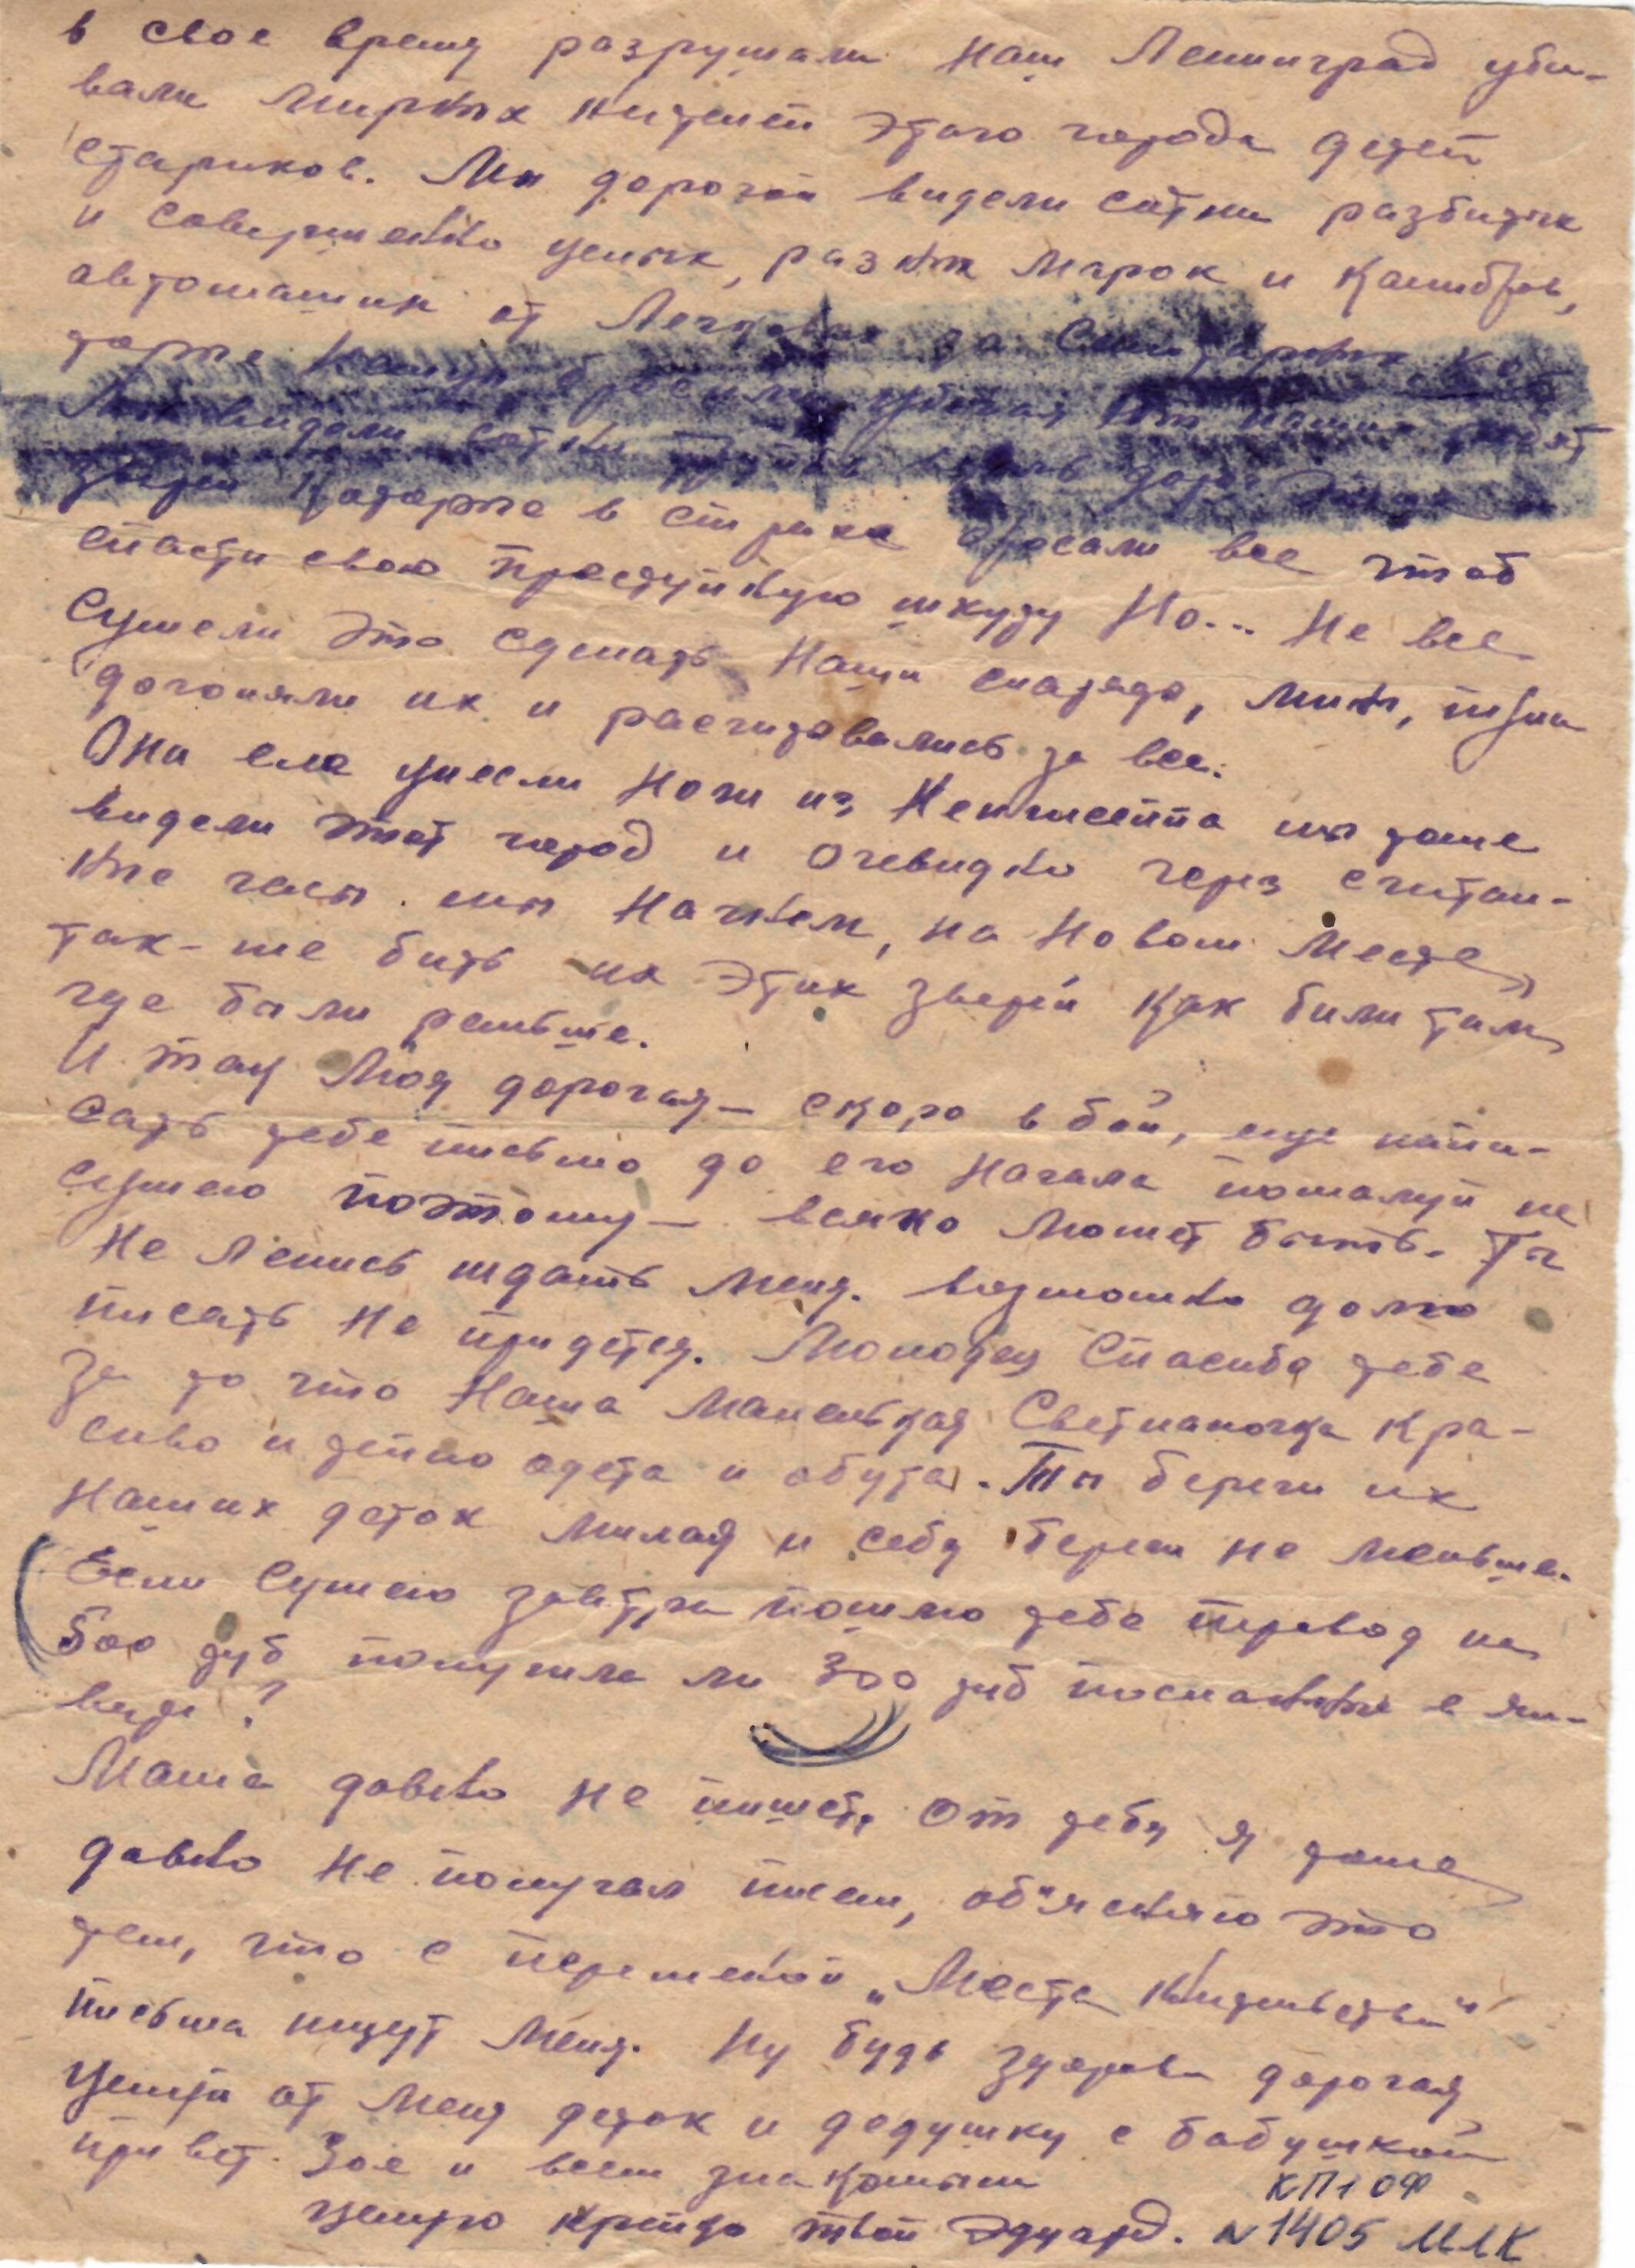 в свое время разрушали наш Ленинград уби-
вали мирных жителей этого города детей
стариков. Мы дорогой видели сотни разбитых
и совершенно целых, разных марок и калибров,
автомашин от легковых до
даже
Мы видели сотни трупов вдоль дорог этих
зверей которые в страхе бросали все чтоб
спасти свою преступную шкуру Но... Не все
сумели это сделать Наши снаряды, мины, пули
догоняли их и расчитовались за все.
Они еле унесли ноги из Кенгисеппа мы тоже
видели этот город и очевидно через считан-
ные часы мы начнем, на новом месте
так-же бить их этих зверей как били там
где были раньше.
И так моя дорогая – скоро в бой, еще напи-
сать тебе письмо до его начала пожалуй не
сумею поэтому – всяко может быть. Ты
не ленись ждать меня. возможно долго
писать не придется. Молодец Спасибо тебе
за то что Наша маленькая Светланочка кра-
сиво и тепло одета и обута. Ты береги их
наших деток милая и себя береги не меньше.
Если сумею завтра пошлю тебе перевод на
500 руб получила ли 300 руб посланные в ян-
варе?
Маша давно не пишет, от тебя я тоже
давно не получал писем, об"ясняю это
тем, что с переменой „Места жительства"
письма ищут меня. Ну будь здорова дорогая
целуй от меня деток и дедушку с бабушкой
привет Зое и всем знакомым
целую крепко твой Эдуард.
КП1 ОФ
N1405 МЛК